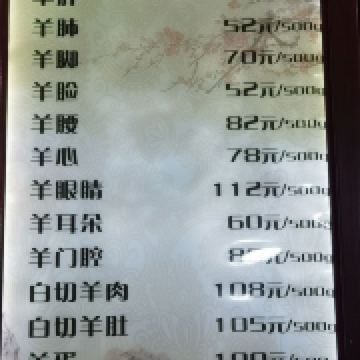 羊肺 52元/500g
羊脚 70元/500g
羊脸 52元/500g
羊腰 82元/500g
羊心 78元/500g
羊眼睛 112元/500g
羊耳朵 60元/500g
羊门腔 元/500g
白切羊肉 108元/500g
白切羊肚 105元/500g